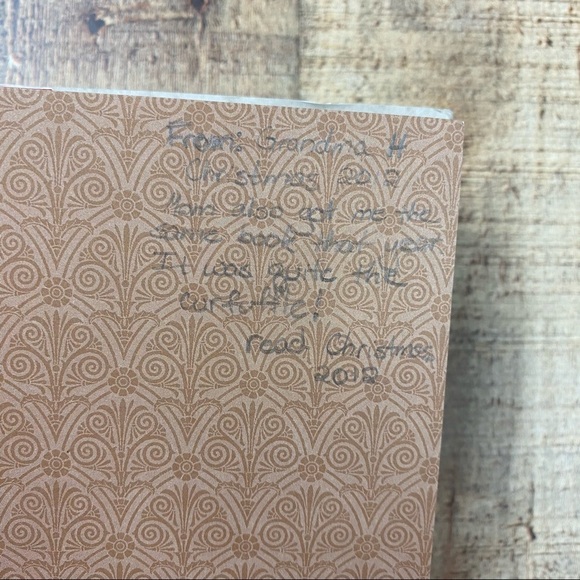 From: Grandma H
Christmas 2012
Mom also got me the
same book that year
It was quite the
read Christmas
2018